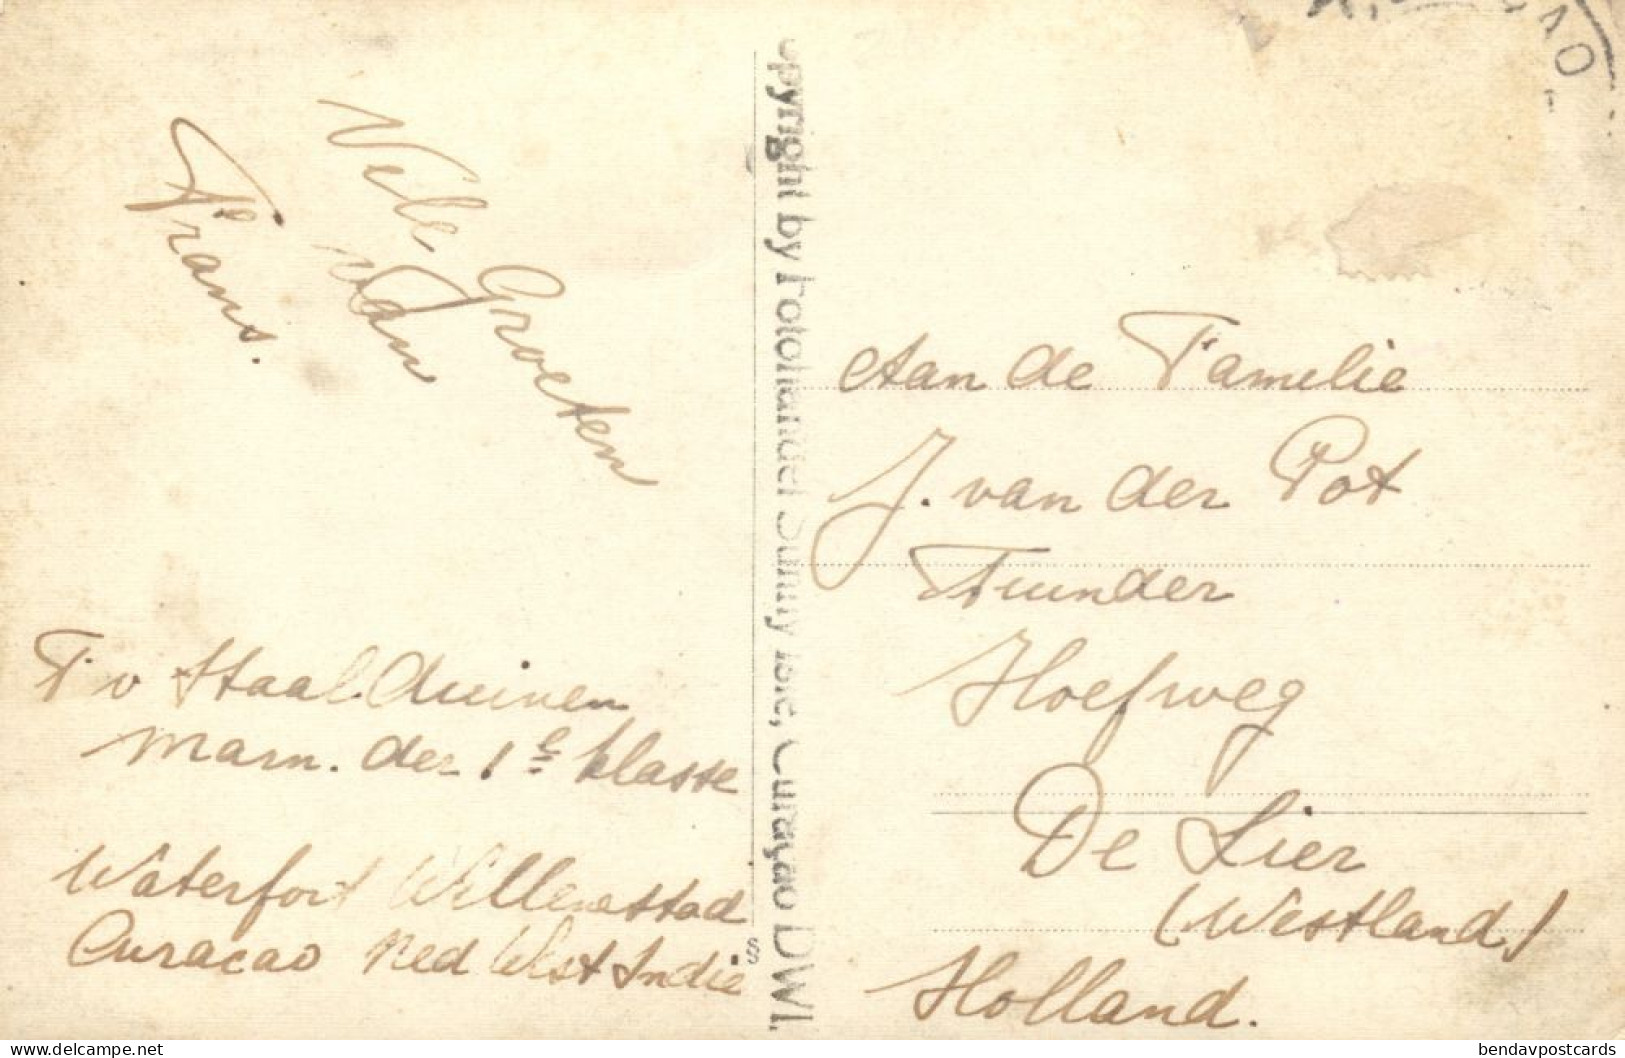 Vele Groeten
van
Frans.
F v Staalduinen
Marn. der 1e klasse
Waterfort Willemstad
Curacao Ned West Indie
opyright by Fotohandel Sunny Isle, Curaçao DWI.
§
Aan de Familie
J. van der Pot
Tuinder
Hoefweg
De Lier
(Westland)
Holland.
delcampe.net
bendavpostcards